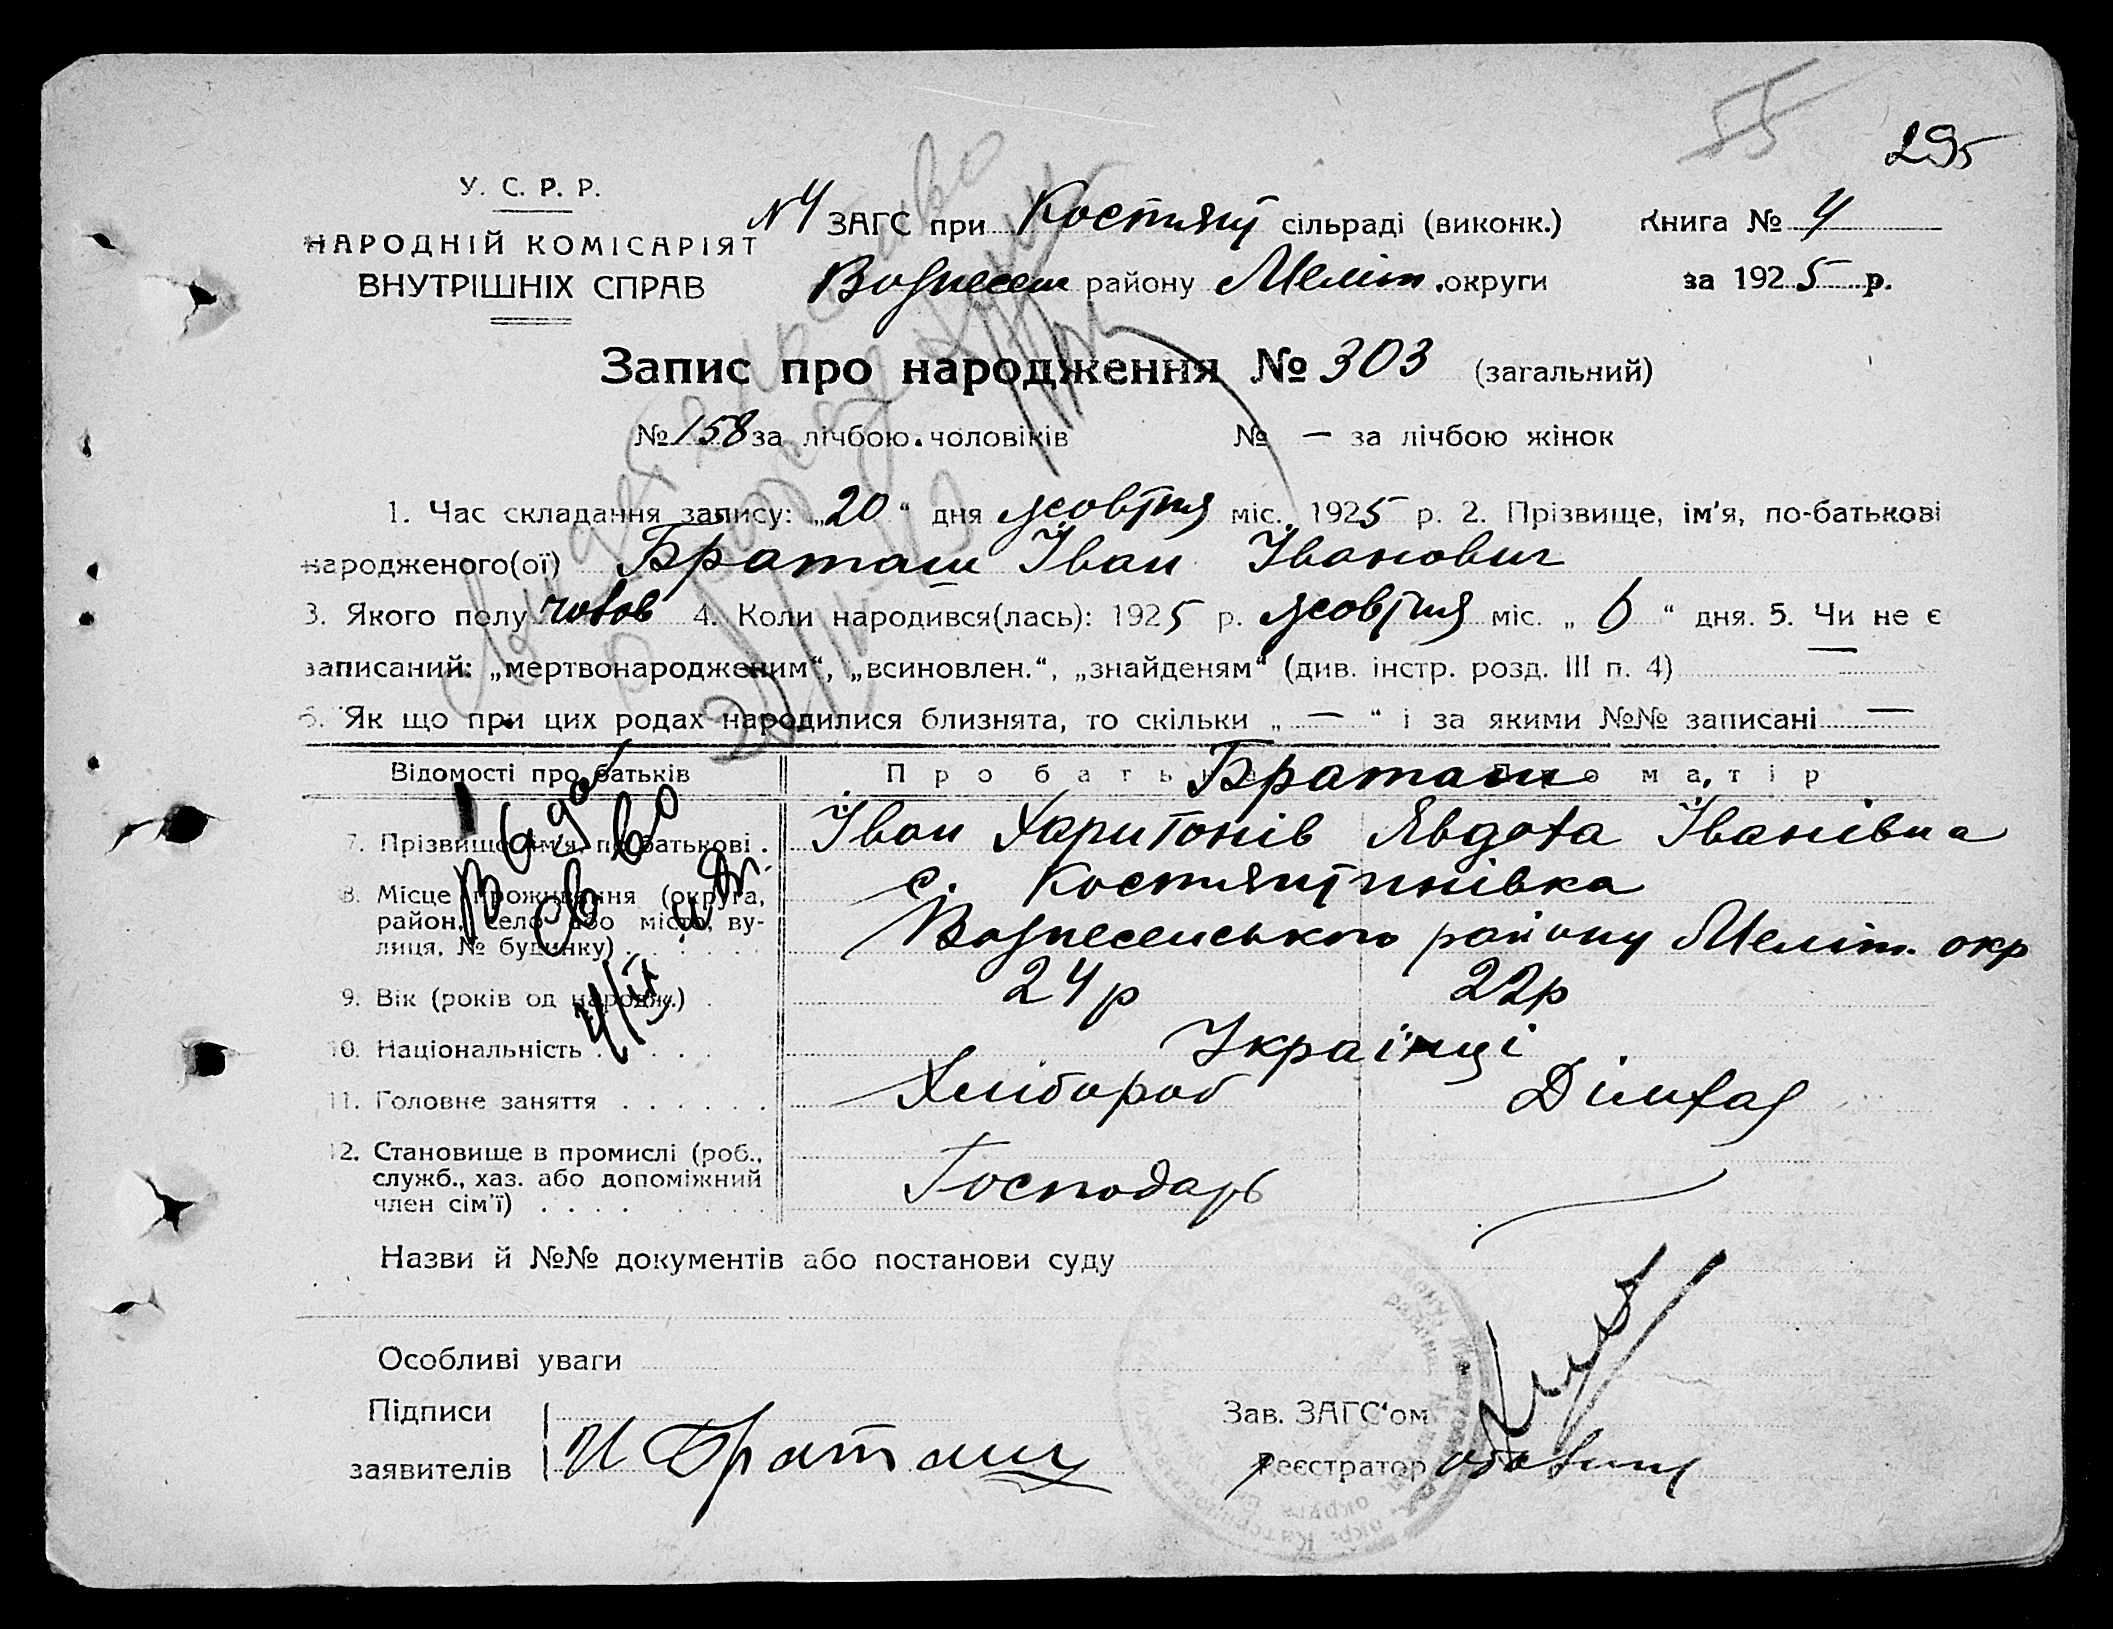 55
295
У. С. Р. Р.
НАРОДНІЙ КОМІСАРІЯТ
ВНУТРІШНІХ СПРАВ
№ 4 ЗАГС при Костянт сільраді (виконк.) Книга № 4
Вознесен району Меліт. округи за 1925 р.
Запис про народження № 303 (загальний)
№ 158 за лічбою чоловіків № — за лічбою жінок
1. Час складання запису: „20" дня жовтня міс. 1925 р. 2. Прізвище, ім'я, по-батькові
народженого(ої) Браташ Іван Іванович
3. Якого полу чолов 4. Коли народився(лась): 1925 р. жовтня міс. „ 6 " дня. 5. Чи не є
записаний: „мертвонародженим", „всиновлен.", „знайденям" (див. інстр. розд. III п. 4) —
6. Як що при цих родах народилися близнята, то скільки „ — " і за якими №№ записані —
Відомості про батьків Про батька Про матір
Браташ
7. Прізвище, ім'я, по батькові . Іван Харитонів Явдота Іванівна
8. Місце проживання (округа, с. Костянтинівка
район, село або місто, ву-
лиця, № будинку) . . . . . . Вознесенського району Меліт. окр
9. Вік (років од народж.) . 24 р 22 р
10. Національність . . . . . Українці
11. Головне заняття . . . . . . Хлібороб Дімтая
12. Становище в промислі (роб.,
служб., хаз. або допоміжний Господарь
член сім'ї) . . . . . . . .
Назви й №№ документів або постанови суду
Особливі уваги
Підписи Зав. ЗАГС'ом
заявителів И Браташ Реєстратор